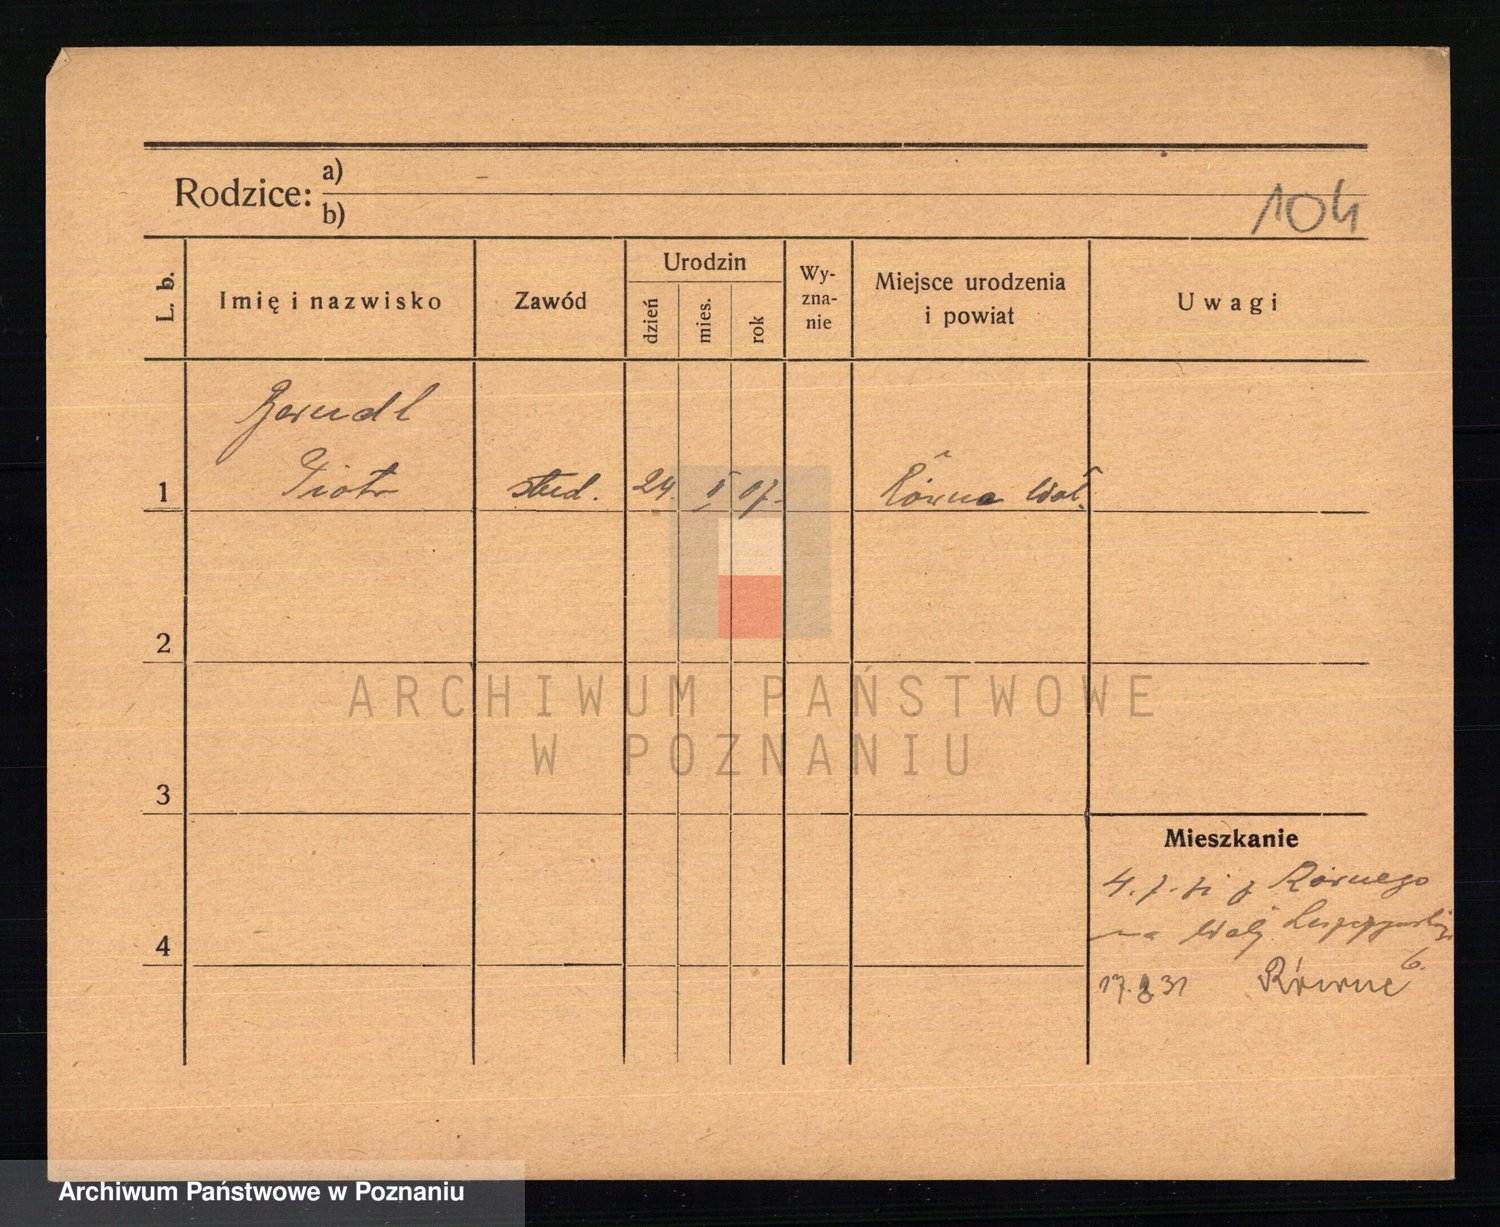 Rodzice: a)
b)
104
L. b.
Imię i nazwisko
Zawód
Urodzin
dzień
mies.
rok
Wy-
zna-
nie
Miejsce urodzenia
i powiat
Uwagi
Piotr
1
stud.
24.
II
07.
Równe Woł.
2
3
4
Mieszkanie
z Równego
na Wały
6.
17. 8 31 Równe
ARCHIWUM PAŃSTWOWE
W POZNANIU
Archiwum Państwowe w Poznaniu